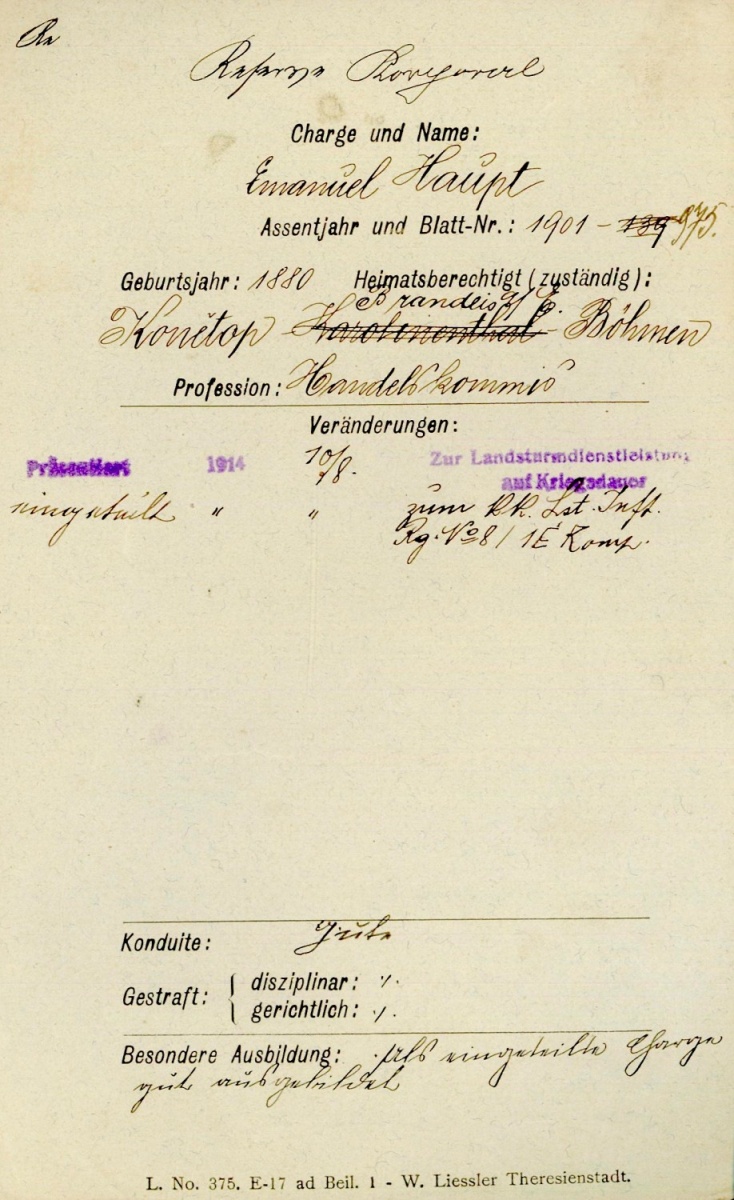 Re
Reserve Korporal
Charge und Name:
Emanuel Haupt
Assentjahr und Blatt-Nr.: 1901 - 139 375.
Geburtsjahr: 1880 Heimatsberechtigt (zuständig):
Brandeis a/E.
Konětop - Karolinenthal - Böhmen
Profession: Handelskommis
Veränderungen:
Präsentiert 1914 10/8. Zur Landsturmdienstleistung
auf Kriegsdauer
eingeteilt " " zum k.k. Lst. Inft.
Rg. No 8 / 1 E Komp.
Konduite: Gute
Gestraft: { disziplinar: ./.
gerichtlich: ./.
Besondere Ausbildung: Als eingeteilte Charge
gut ausgebildet
L. No. 375. E-17 ad Beil. 1 - W. Liessler Theresienstadt.